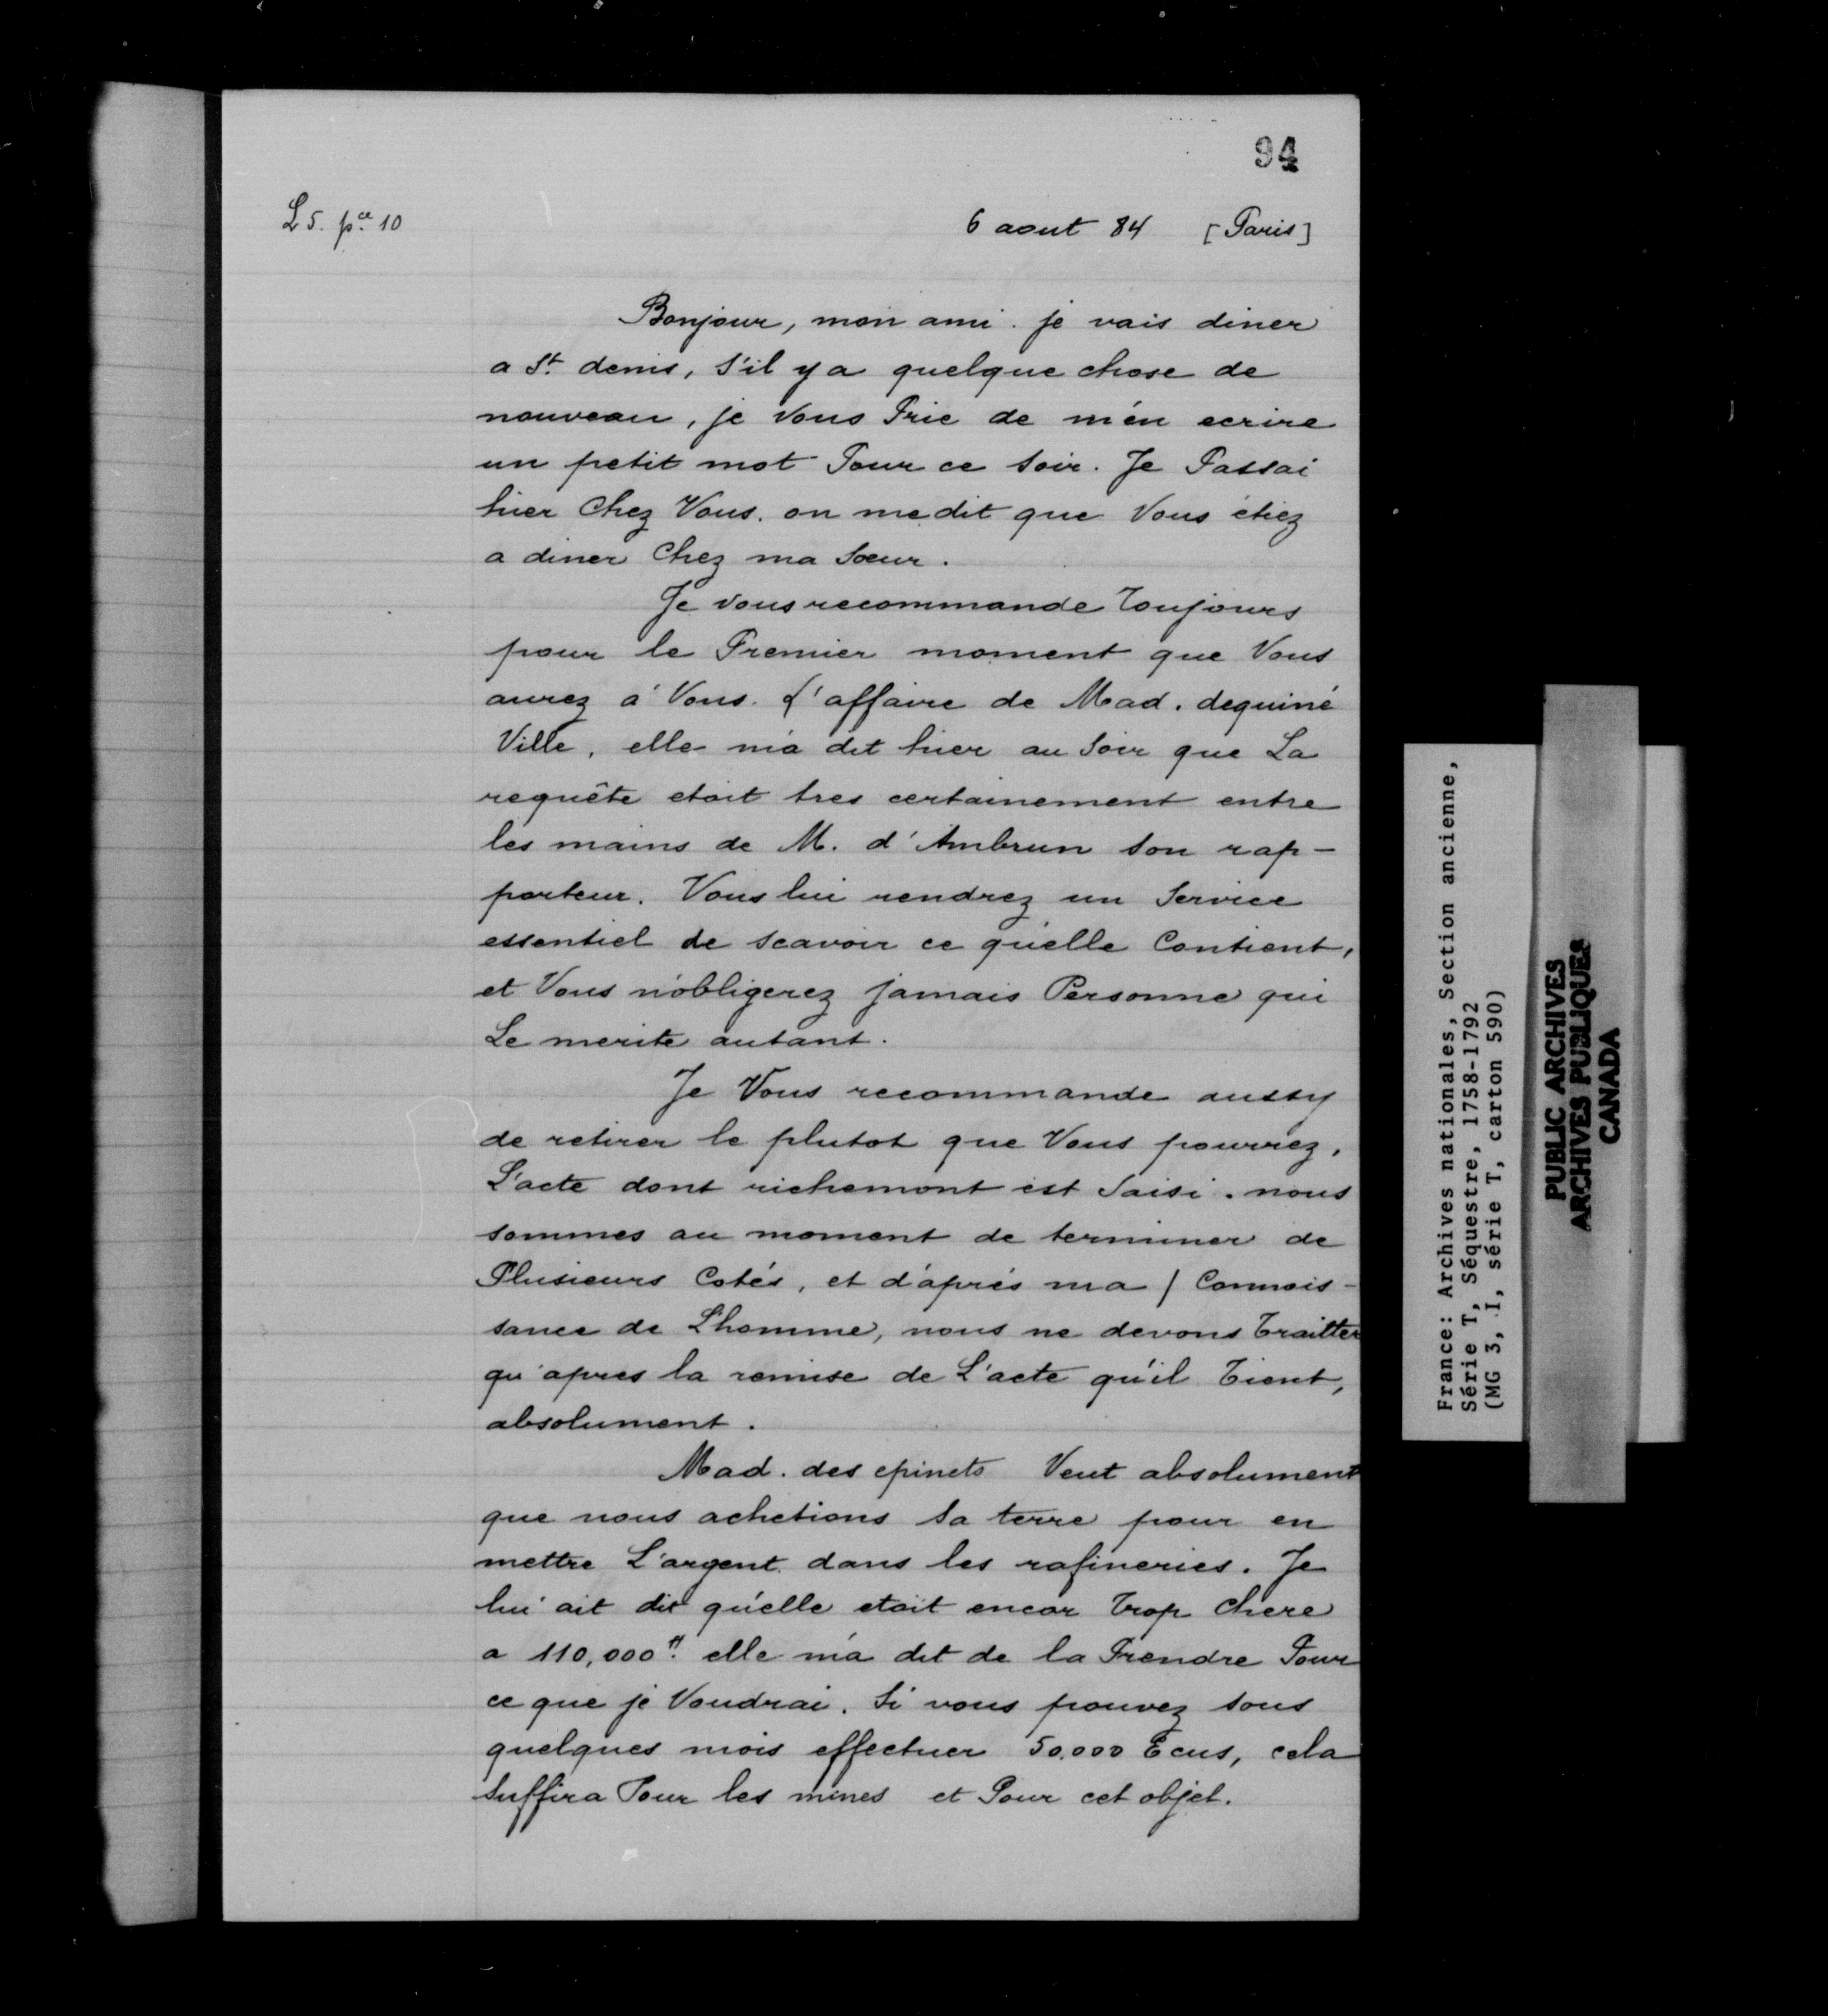 94
L 5. pce 10
6 aout 84 [Paris]
Bonjour, mon ami. je vais diner
a St. denis, s'il y a quelque chose de
nouveau, je Vous Prie de m'én ecrire
un petit mot Pour ce soir. Je Passai
hier Chez Vous. on me dit que Vous étiez
a diner Chez ma Sœur.
Je vous recommande Toujours
pour le Premier moment que Vous
aurez á Vous. L'affaire de Mad. dequiné
Ville, elle m'a dit hier au Soir que La
requête etoit tres certainement entre
les mains de M. d'Ambrun son rap-
porteur. Vous lui rendrez un Service
essentiel de scavoir ce qu'elle Contient,
et Vous n'obligerez jamais Personne qui
Le merite autant.
Je Vous recommande aussy
de retirer le plutot que Vous pourrez,
L'acte dont richemont est Saisi. nous
sommes au moment de terminer de
Plusieurs Cotés, et d'aprés ma / Connois-
sance de L'homme, nous ne devons Traitter
qu'apres la remise de L'acte qu'il Tient,
absolument.
Mad. des epinets Veut absolument
que nous achetions sa terre pour en
mettre L'argent dans les rafineries. Je
lui ait dit qu'elle etoit encor Trop Chere
a 110,000 ₶. elle m'a dit de la Prendre Pour
ce que je Voudrai. Si vous pouvez sous
quelques mois effectuer 50.000 Ecus, cela
Suffira Pour les mines et Pour cet objet.
France: Archives nationales, Section ancienne,
Série T, Séquestre, 1758-1792
(MG 3, I, série T, carton 590)
PUBLIC ARCHIVES
ARCHIVES PUBLIQUES
CANADA